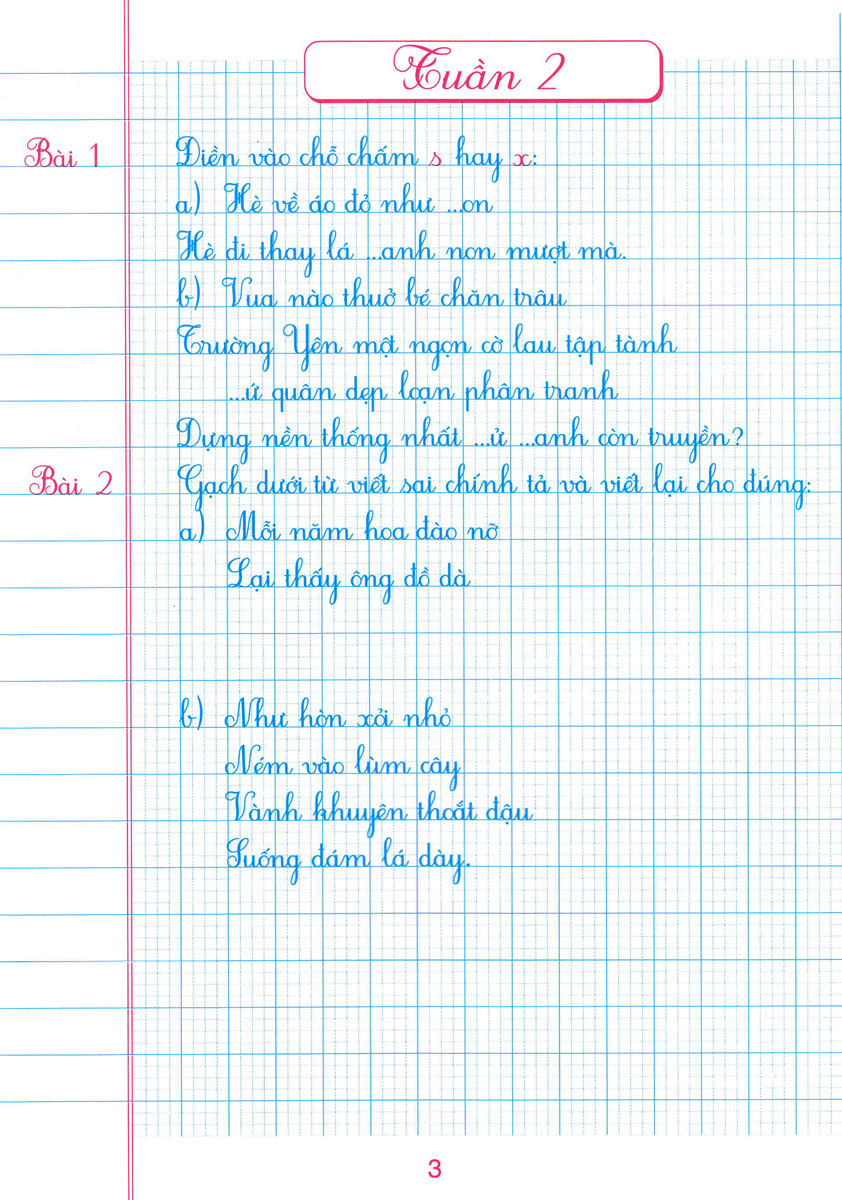 Tuần 2
Bài 1 Điền vào chỗ chấm s hay x:
a) Hè về áo đỏ như ...on
Hè đi thay lá ...anh non mượt mà.
b) Vua nào thuở bé chăn trâu
Trường Yên một ngọn cờ lau tập tành
...ứ quân dẹp loạn phân tranh
Dựng nền thống nhất ...ử ...anh còn truyền?
Bài 2 Gạch dưới từ viết sai chính tả và viết lại cho đúng:
a) Mỗi năm hoa đào nỡ
Lại thấy ông đồ dà
b) Như hòn xỏi nhỏ
Ném vào lùm cây
Vành khuyên thoắt đậu
Suống đám lá dày.
3